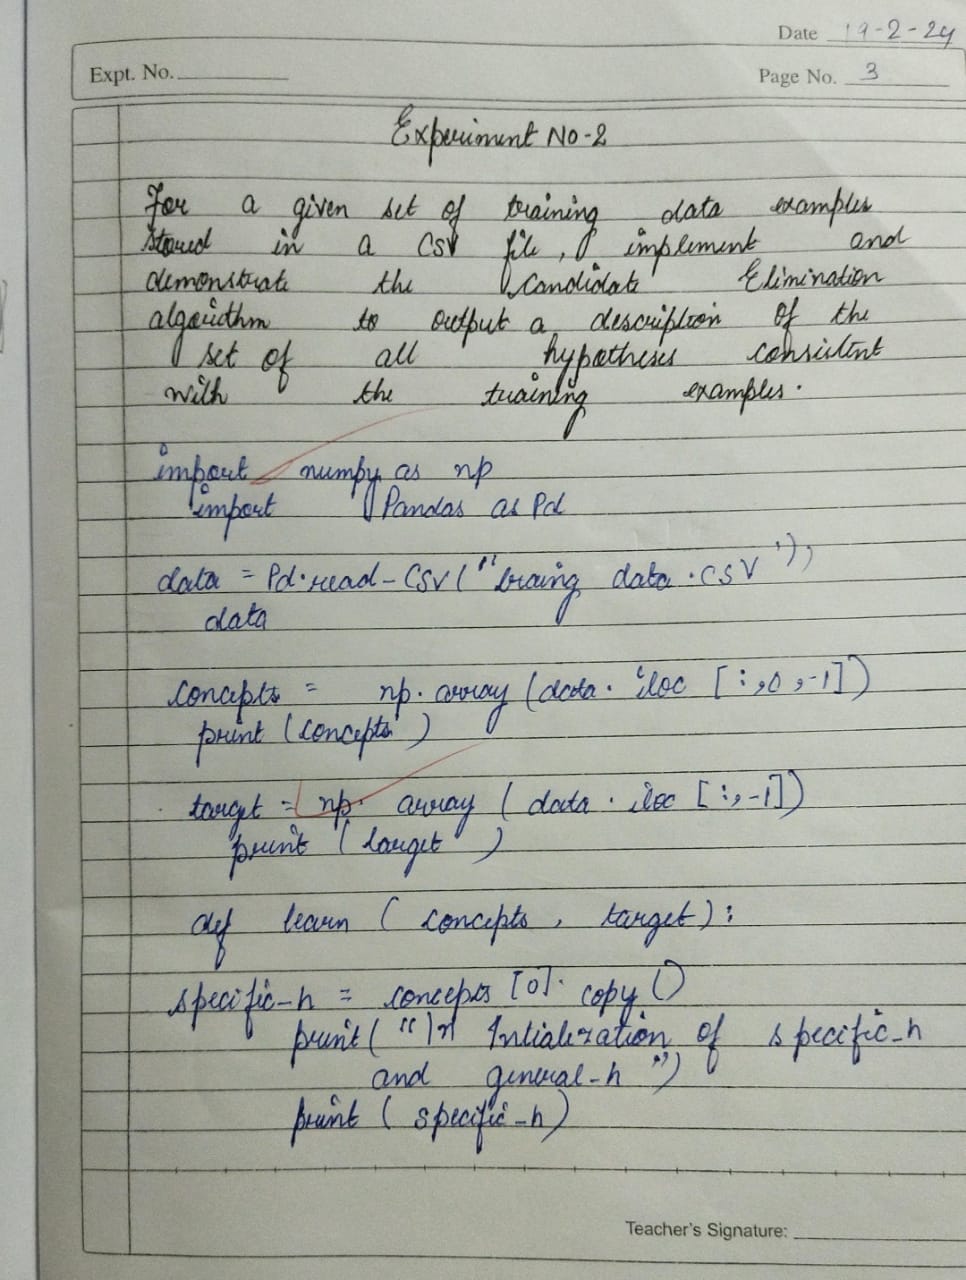 Date 19-2-24
Expt. No.
Page No. 3
Experiment No-2
For a given set of training data examples
stored in a CSV file, implement and
demonstrate the Candidate Elimination
algorithm to output a description of the
set of all hypotheses consistent
with the training examples.
import numpy as np
import Pandas as Pd
data = Pd.read-CSV("traing data.CSV");
data
concepts = np.array(data.iloc [:,0,-1])
print (concepts)
target = np.array (data.iloc [:,-1])
print (target)
def learn (concepts, target):
specific-h = concepts [0].copy()
print("\n Intialization of specific-h
and general-h")
print (specific-h)
Teacher's Signature: